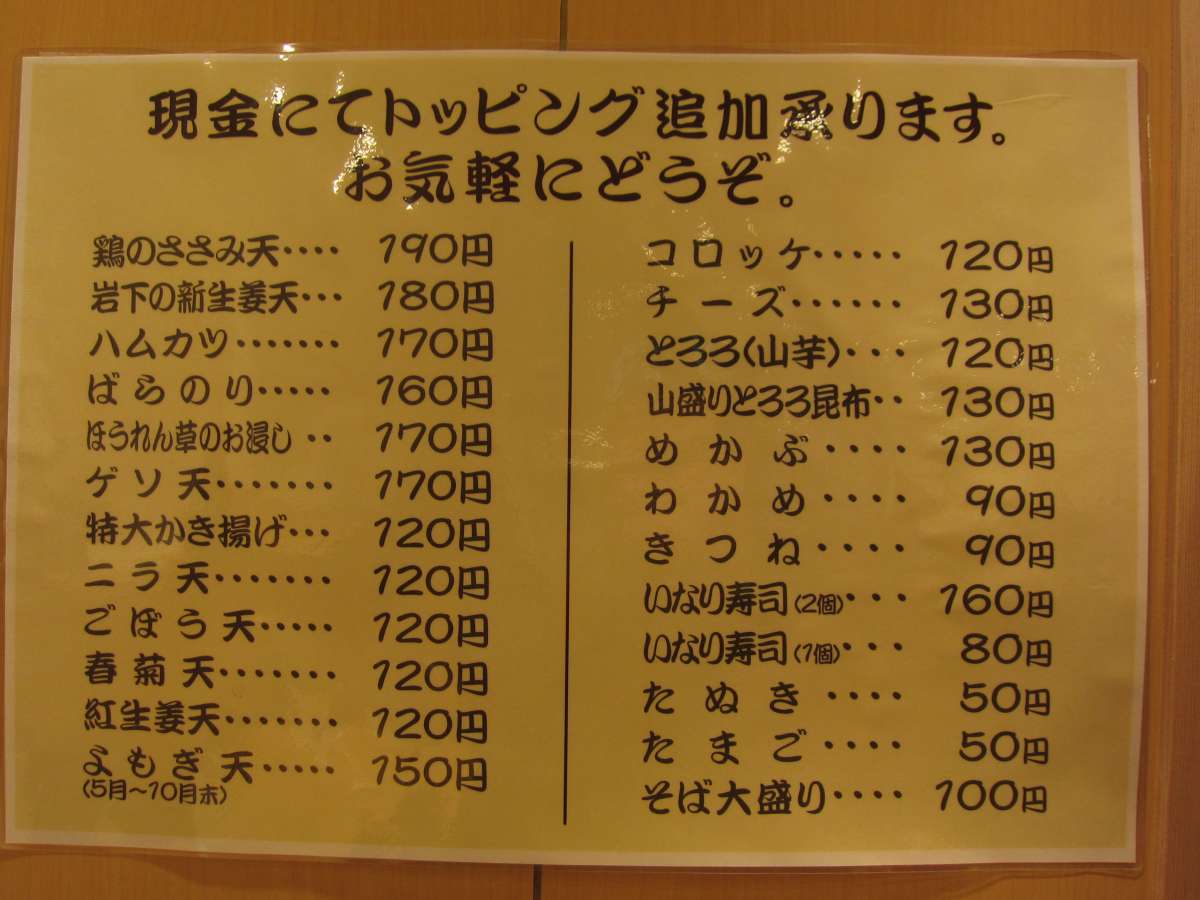 現金にてトッピング追加承ります。
お気軽にどうぞ。
鶏のささみ天････ 190円
岩下の新生姜天･･･ 180円
ハムカツ･･･････ 170円
ばらのり･････ 160円
ほうれん草のお浸し ･･ 170円
ゲソ天･･･････ 170円
特大かき揚げ･･･ 120円
ニラ天･･･････ 120円
ごぼう天･････ 120円
春菊天･･･････ 120円
紅生姜天･･･････ 120円
よもぎ天･････ 150円
(5月～10月末)
コロッケ･････ 120円
チーズ･･････ 130円
とろろ(山芋)･･･ 120円
山盛りとろろ昆布･･ 130円
めかぶ････ 130円
わかめ････ 90円
きつね････ 90円
いなり寿司(2個)･･･ 160円
いなり寿司(1個)･･･ 80円
たぬき････ 50円
たまご････ 50円
そば大盛り････ 100円